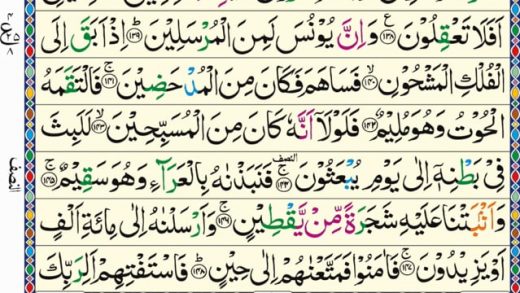 اَفَلَا تَعْقِلُوْنَ ﴿۱۳۸﴾ وَاِنَّ يُوْنُسَ لَمِنَ الْمُرْسَلِيْنَ ﴿۱۳۹﴾ اِذْ اَبَقَ اِلَى
الْفُلْكِ الْمَشْحُوْنِ ﴿۱۴۰﴾ فَسَاهَمَ فَكَانَ مِنَ الْمُدْحَضِيْنَ ﴿۱۴۱﴾ فَالْتَقَمَهُ
الْحُوْتُ وَهُوَ مُلِيْمٌ ﴿۱۴۲﴾ فَلَوْلَاۤ اَنَّهٗ كَانَ مِنَ الْمُسَبِّحِيْنَ ﴿۱۴۳﴾ لَلَبِثَ
فِيْ بَطْنِهٖۤ اِلٰى يَوْمِ يُبْعَثُوْنَ ﴿۱۴۴﴾ فَنَبَذْنٰهُ بِالْعَرَآءِ وَهُوَ سَقِيْمٌ ﴿۱۴۵﴾
وَاَنْۢبَتْنَا عَلَيْهِ شَجَرَةً مِّنْ يَّقْطِيْنٍ ﴿۱۴۶﴾ وَاَرْسَلْنٰهُ اِلٰى مِائَةِ اَلْفٍ
اَوْ يَزِيْدُوْنَ ﴿۱۴۷﴾ فَاٰمَنُوْا فَمَتَّعْنٰهُمْ اِلٰى حِيْنٍ ﴿۱۴۸﴾ فَاسْتَفْتِهِمْ اَلِرَبِّكَ
النصف